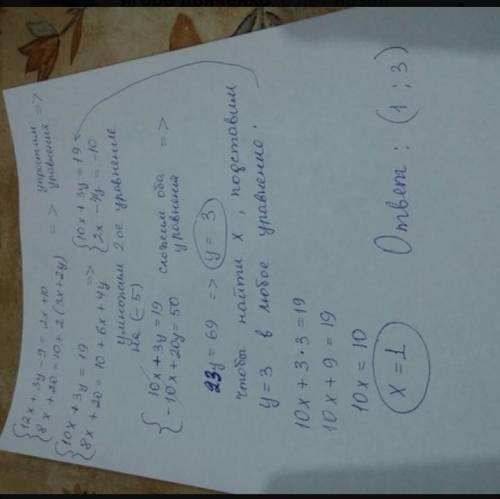 {12x+3y-9=2x+10
{8x+20=10+2(3x+2y) => упростим уравнения =>
{10x+3y=19
{8x+20=10+6x+4y => {10x+3y=19
{2x-4y=-10
умножим 2ое уравнение
на (-5)
{10x+3y=19
{-10x+20y=50 сложим оба уравнения =>
23y=69 => y=3
чтобы найти x, подставим
y=3 в любое уравнение:
10x+3·3=19
10x+9=19
10x=10
x=1
Ответ: (1;3)